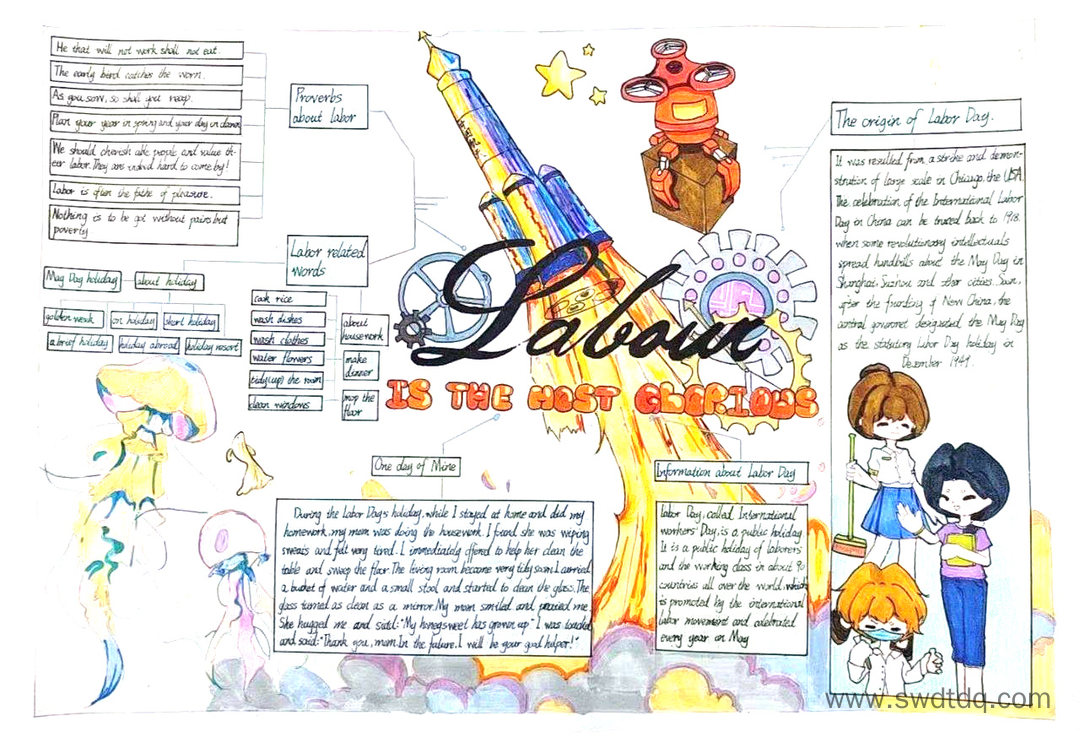 He that will not work shall not eat.
The early bird catches the worm.
As you sow, so shall you reap.
Plan your year in spring and your day in dawn
We should cherish able people and value th-
eir labor. They are indeed hard to come by!
Labor is often the father of pleasure.
Nothing is to be got without pains but
poverty
Proverbs
about labor
Labor related
words
May Day holiday
about holiday
golden week
on holiday
short holiday
a brief holiday
holiday abroad
holiday resort
cook rice
wash dishes
wash clothes
water flowers
tidy(up) the room
clean windows
about
housework
make
dinner
mop the
floor
Labour
IS THE MOST GLORIOUS
The origin of Labor Day.
It was resulted from a strike and demon-
stration of large scale in Chicago, the USA.
The celebration of the International Labor
Day in China can be traced back to 1918.
when some revolutionary intellectuals
spread handbills about the May Day in
Shanghai, Suzhou and other cities. Soon,
after the founding of New China, the
central governet designated the May Day
as the statutory Labor Day holiday in
Desember 1949.
One day of Mine
During the Labor Day's holiday, while I stayed at home and did my
homework, my mom was doing the housework. I found she was wiping
sweats and felt very tired. I immediately offered to help her clean the
table and sweep the floor. The living room became very tidy soon. I carried
a bucket of water and a small stool and started to clean the glass. The
glass turned as clean as a mirror. My mom smiled and praised me.
She hugged me and said: "My honey sweet has grown up." I was touched
and said: "Thank you, mom. In the future, I will be your good helper!"
Information about Labor Day
labor Day, called International
workers' Day, is a public holiday.
It is a public holiday of laborers
and the working class in about 90
countries all over the world. which
is promoted by the international
labor movement and celebrated
every year on May
www.swdtdq.com